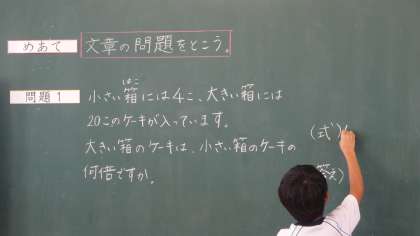 めあて
文章の問題をとこう。
問題1
はこ
小さい箱には4こ、大きい箱には
20このケーキが入っています。
大きい箱のケーキは、小さい箱のケーキの
何倍ですか。
(式)
答え)